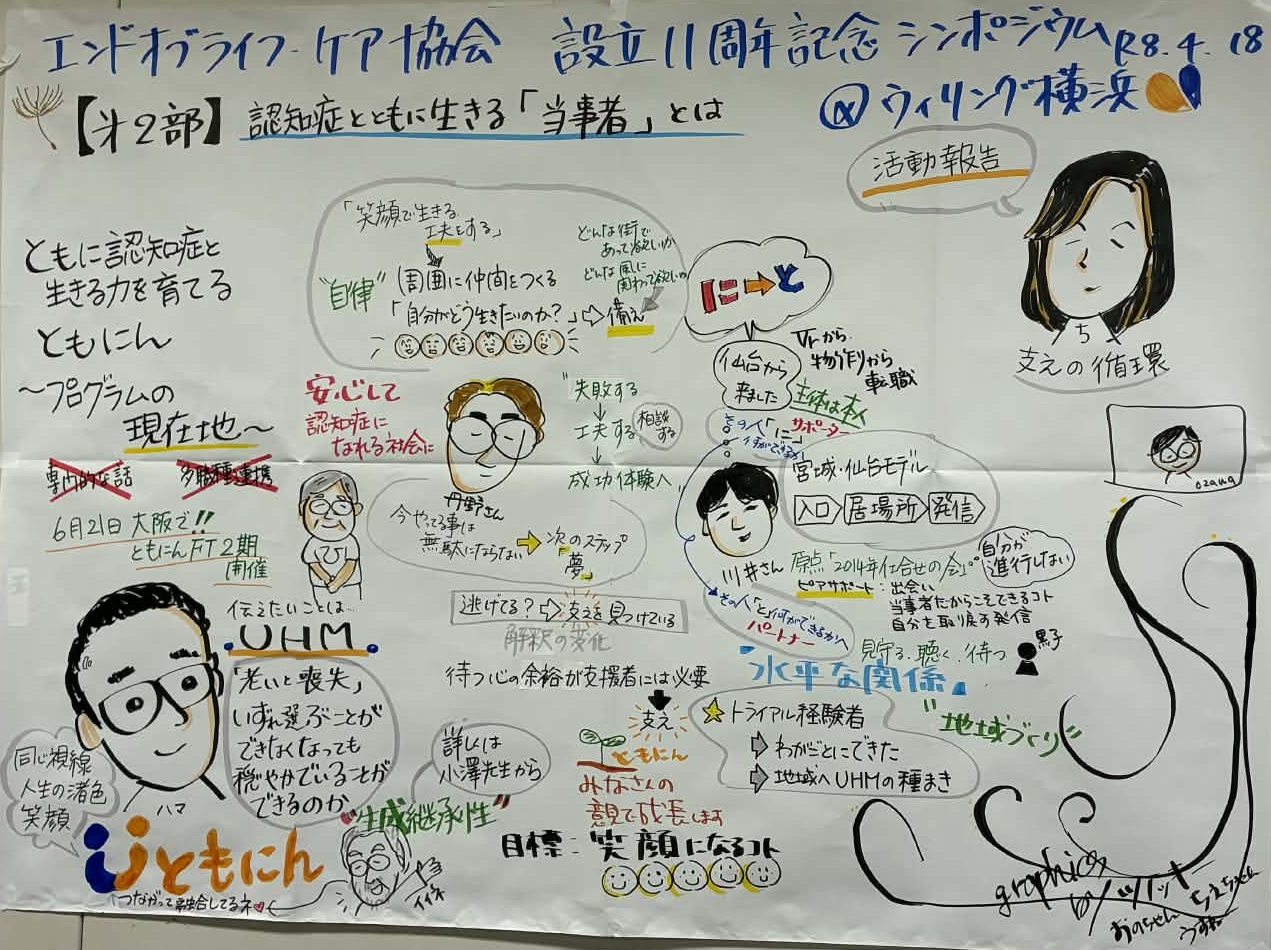 エンドオブライフ・ケア協会 設立11周年記念 シンポジウム R8.4.18
@ウィリング横浜
【第2部】認知症とともに生きる「当事者」とは
活動報告
ち
支えの循環
ozawa
ともに認知症と
生きる力を育てる
ともにん
～プログラムの
現在地～
専門的な話
多職種連携
6月21日 大阪で!!
ともにんFT2期
開催
「笑顔で生きる
工夫をする」
"自律"
周囲に仲間をつくる
「自分がどう生きたいのか?」⇨備え
どんな街で
あって欲しいか
どんな風に
関わって欲しいか
安心して
認知症に
なれる社会に
丹野さん
"失敗する
↓
工夫する
相談する
↓
成功体験へ"
今やってる事は
無駄にならない
⇨
次のステップ
「夢」
逃げてる?⇨支えを見つけている
解釈の変化
待つ心の余裕が支援者には必要
支え
ともにん
みなさんの
意見で成長します
目標:笑顔になるコト
に→と
仙台から
来ました
Vrから
物作りから
転職
主体は本人
その人「に」
サポーター
何ができるか
川井さん
その人「と」何ができるかへ
パートナー
宮城・仙台モデル
入口
居場所
発信
原点「2014年仕合せの会」
自分が
進行しない
ピアサポート:出会い
当事者だからこそできるコト
自分を取り戻す発信
見守る、聴く、待つ
黒子
「水平な関係」
"地域づくり"
☆トライアル経験者
⇨わがごとにできた
⇨地域へUHMの種まき
伝えたいことは…
UHM
「老いと喪失」
いずれ選ぶことが
できなくなっても
穏やかでいることが
できるのか
詳しくは
小澤先生から
"生成継承性"
同じ視線
人生の渚色
笑顔
ハマ
ともにん
つながって融合してるネ
イイネ
graphics
by ツイッキ
おのちゃん
ちえちゃん